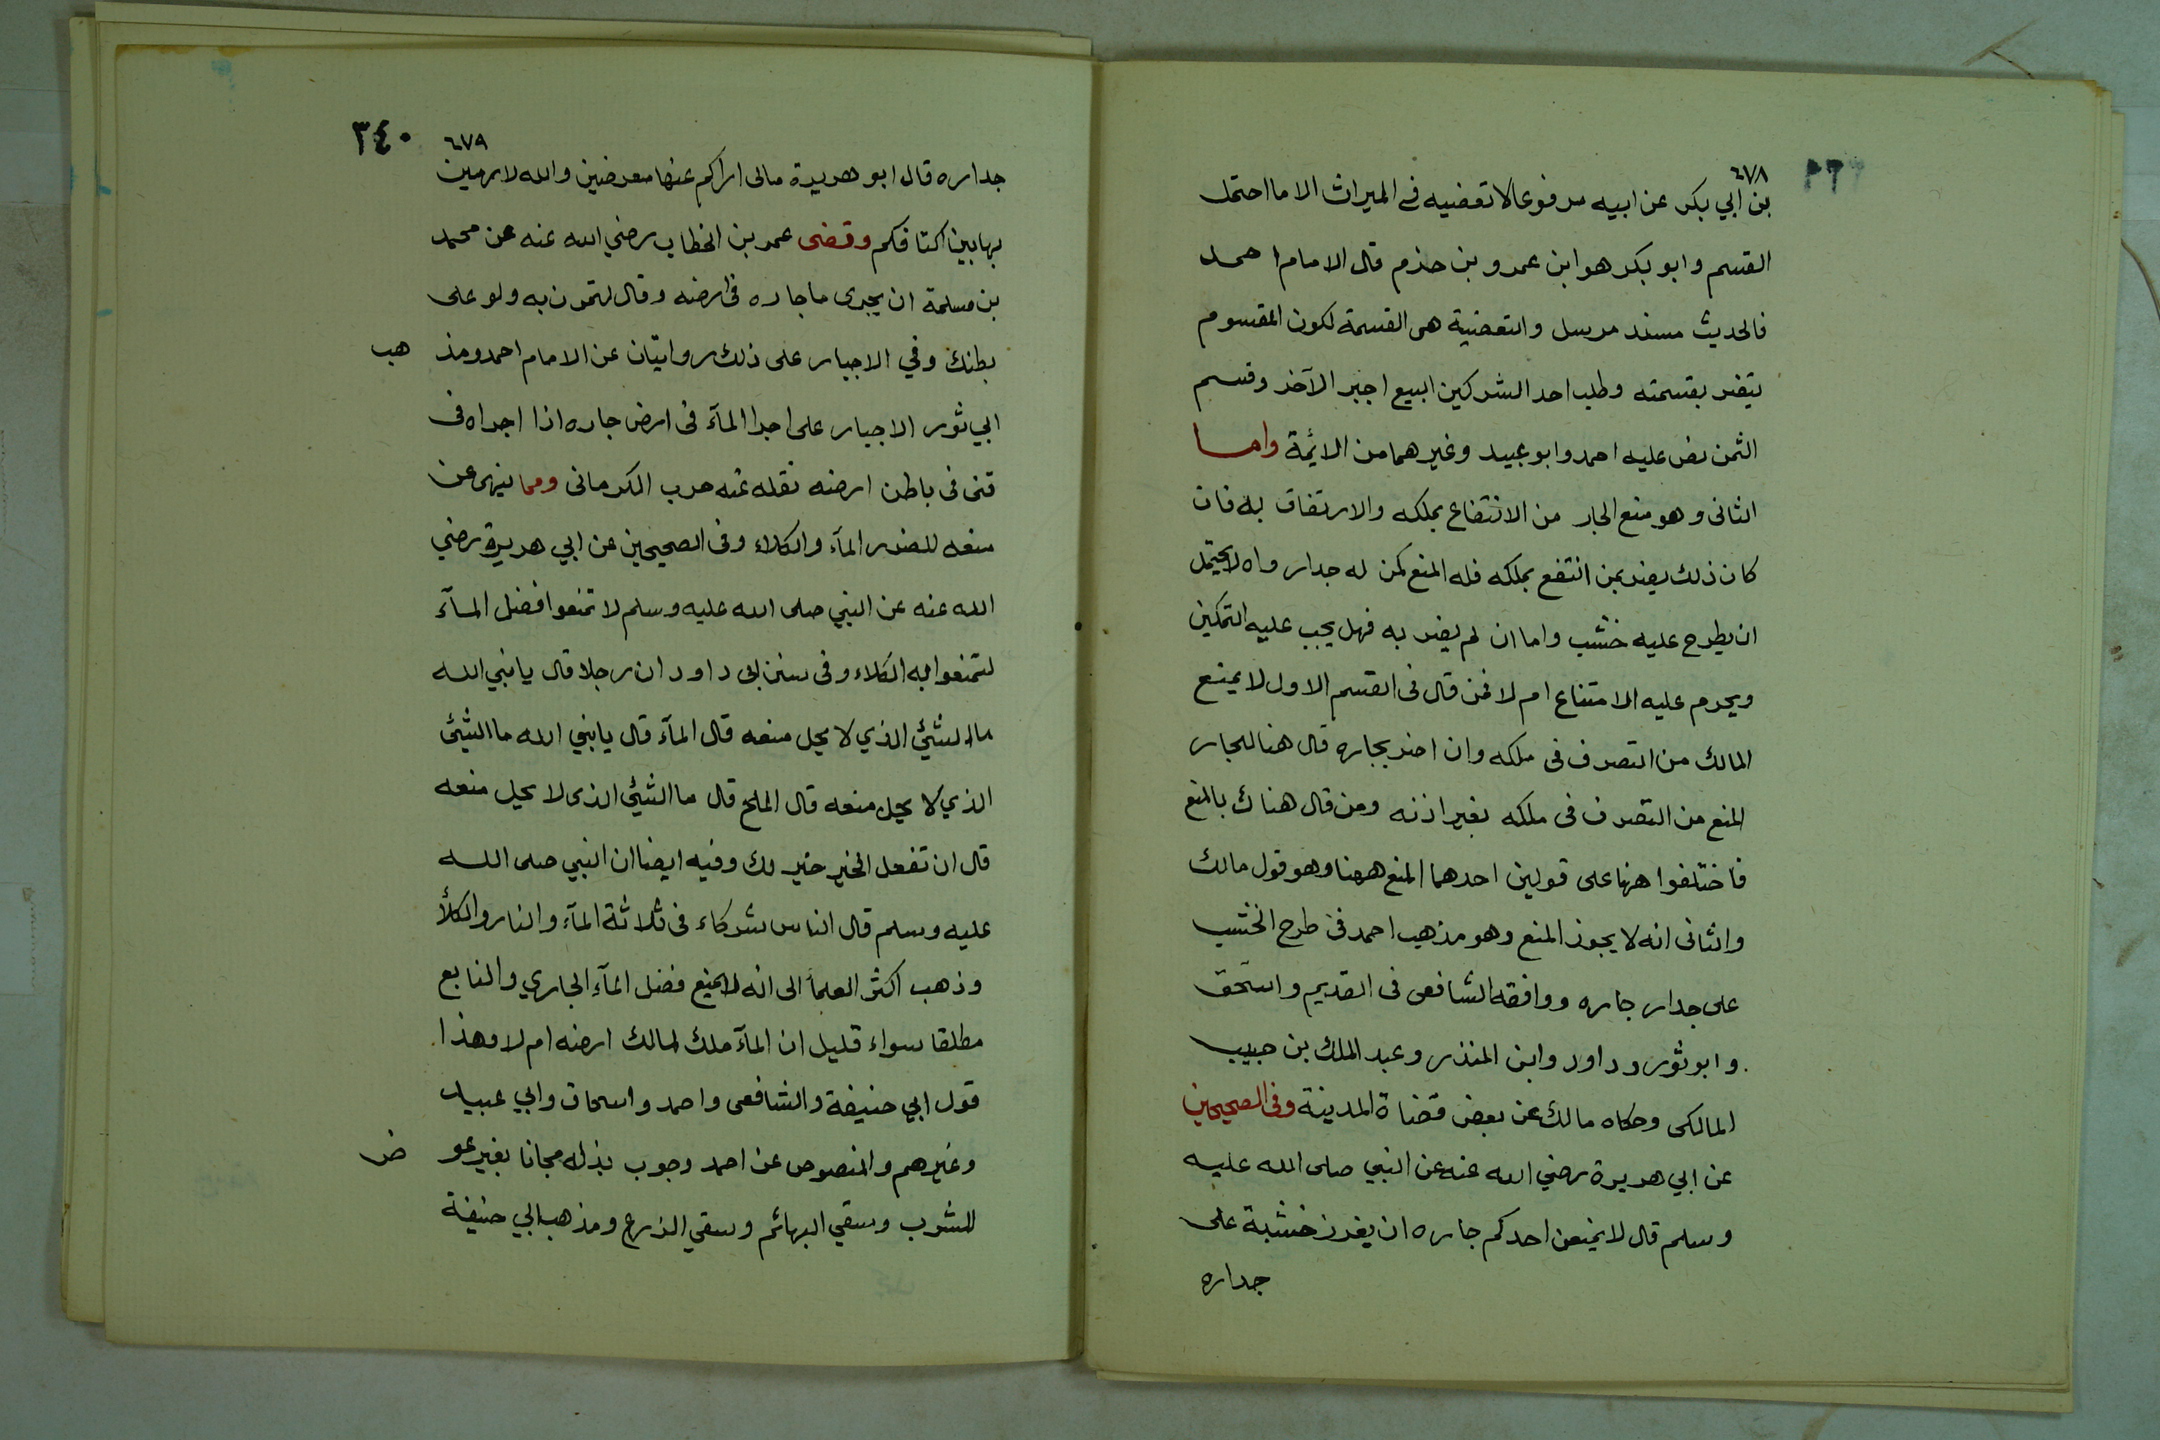 ٦٧٨
بن ابي بكر عن ابيه مرفوعا لا تعضيه في الميراث الا ما احتمل
القسم وابو بكر هو ابن عمرو بن حزم قال الامام احمد
فالحديث مسند مرسل والتعضية هى القسمة لكون المقسوم
يتضر بقسمته وطلب احد الشركين البيع اجبر الآخر وقسم
الثمن نص عليه احمد وابو عبيد وغيرهما من الائمة واما
الثانى وهو منع الجار من الانتفاع بملكه والارتفاق به فان
كان ذلك يضر بمن انتفع بملكه فله المنع كمن له جدار واه لا يحتمل
ان يطرح عليه خشب واما ان لم يضر به فهل يجب عليه التمكين
ويحرم عليه الامتناع ام لا فمن قال فى القسم الاول لا يمنع
المالك من التصرف فى ملكه وان اضر بجاره قال هنا للجار
المنع من التصرف فى ملكه بغير اذنه ومن قال هناك بالمنع
فاختلفوا ههنا على قولين احدهما المنع ههنا وهو قول مالك
والثانى انه لا يجوز المنع وهو مذهب احمد فى طرح الخشب
على جدار جاره ووافقه الشافعى فى القديم واسحق
وابو ثور وداود وابن المنذر وعبد الملك بن حبيب
المالكى وحكاه مالك عن بعض قضاة المدينة وفى الصحيحين
عن ابي هريرة رضي الله عنه عن النبي صلى الله عليه
وسلم قال لا يمنعن احدكم جاره ان يغرز خشبة على
جداره
٣٤٠ ٦٧٩
جداره قال ابو هريرة مالى اراكم عنها معرضين والله لارمين
بها بين اكتافكم وقضى عمر بن الخطاب رضي الله عنه عن محمد
بن مسلمة ان يجرى ما جاره فى ارضه وقال لتمرن به ولو على
بطنك وفي الاجبار على ذلك روايتان عن الامام احمد ومذ هب
ابي ثور الاجبار على اجرا المآء فى ارض جاره اذا اجراه فى
قنى فى باطن ارضه نقله عنه حرب الكرمانى ومما ينهى عن
منعه للضرر المآء والكلاء وفى الصحيحين عن ابي هريرة رضي
الله عنه عن النبي صلى الله عليه وسلم لا تمنعوا فضل المآء
لتمنعوا به الكلاء وفى سنن ابى داود ان رجلا قال يا نبي الله
ما الشيئ الذي لا يحل منعه قال المآء قال يا نبي الله ما الشيئ
الذي لا يحل منعه قال الملح قال ما الشيئ الذى لا يحل منعه
قال ان تفعل الخير خير لك وفيه ايضا ان النبي صلى الله
عليه وسلم قال الناس شركاء فى ثلاثة المآء والنار والكلأ
وذهب اكثر العلمأ الى انه لا يمنع فضل المآء الجاري والنابع
مطلقا سواء قليل ان المآء ملك لمالك ارضه ام لا وهذا
قول ابي حنيفة والشافعى واحمد واسحاق وابي عبيد
وغيرهم والمنصوص عن احمد وجوب بذله مجانا بغير عو ض
للشرب وسقي البهائم وسقي الزرع ومذهب ابي حنيفة